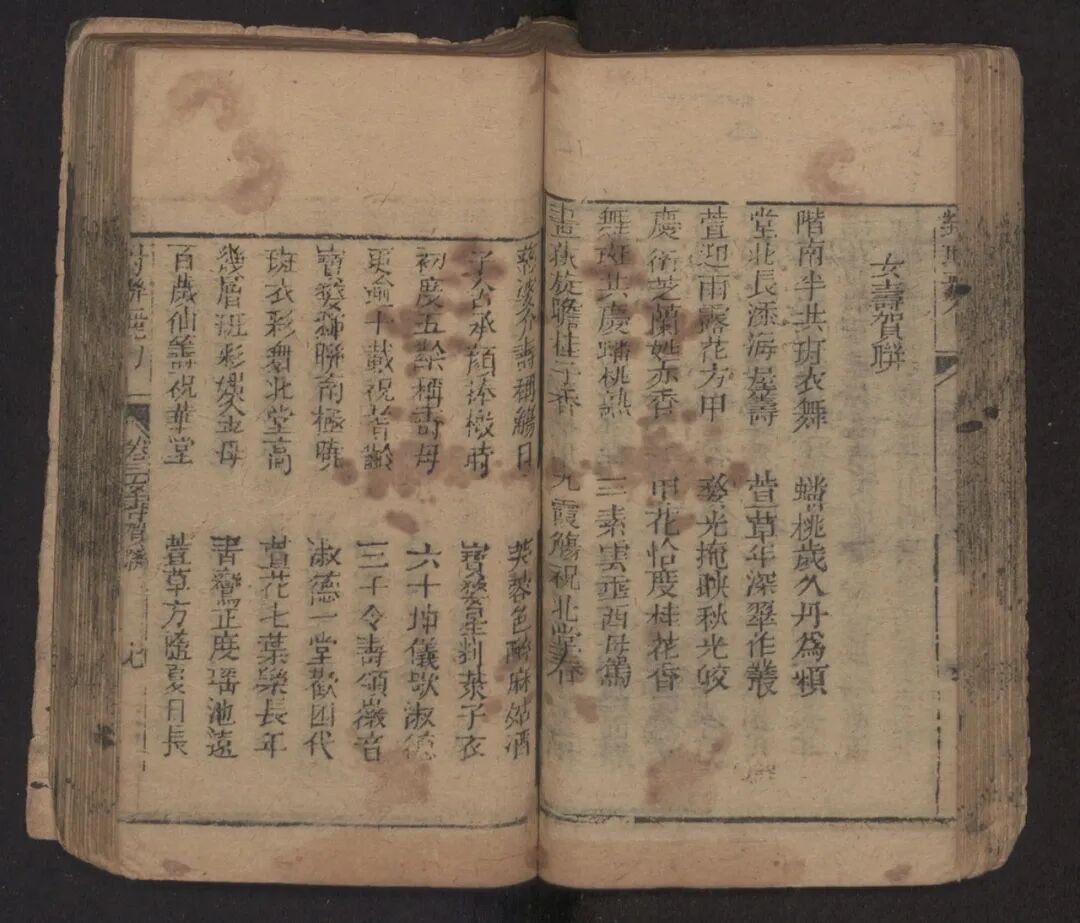 女壽賀聯
階南半共斑衣舞 蟠桃歲久丹為頰
堂北長添海屋壽 萱草年深翠作叢
萱迎雨露花方甲 婺光掩映秋光皎
慶衍芝蘭姓亦香 甲花恰度桂花香
舞斑共慶蟠桃熟 三素雲垂西母鶴
晝 旋瞻桂子香 九霞觴祝北堂春
介壽稱觴日 芙蓉色醉麻姑酒
子舍承顏捧檄時 寶婺星 萊子衣
初度五 稱壽母 六十坤儀 淑德
更逾十載祝耆齡 三千令壽頌徽音
寶婺 聯南極 淑德一堂歡四代
斑衣彩舞北堂高 萱花七葉樂長年
幾層班彩 母 青鸞正度瑤池遠
百歲仙籌祝華堂 萱草方 夏日長
卷三